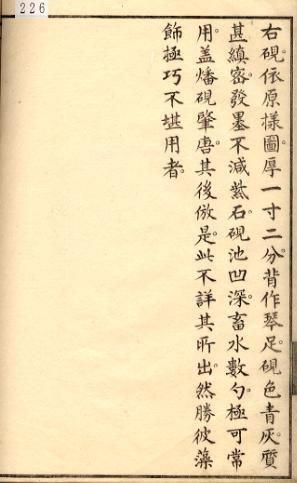 226
右硯依原樣圖。厚一寸二分。背作琴足。硯色青灰。質
甚縝密。發墨不減紫石。硯池凹深。畜水數勺。極可常
用。盖燔硯肇唐。其後倣是。此不詳其所出。然勝彼藻
飾極巧不堪用者。